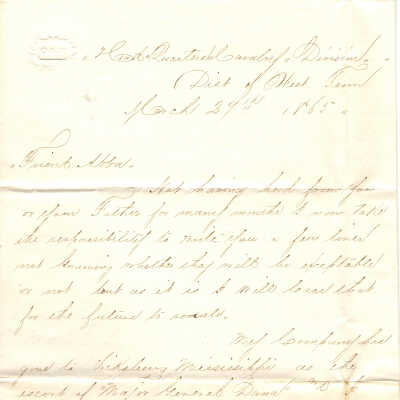 Head Quarters Cavalry Division
Dist of West Tenn
March 27th 1865
Friend Abba
Not having herd from you
or your Father for many months I now take
the responsibility to write you a few lines
not knowing whether they will be exceptable
or not but as it is I will leave that
for the future to
My Company has
gone to Vicksburg Mississippi as the
escort of Major General Dana